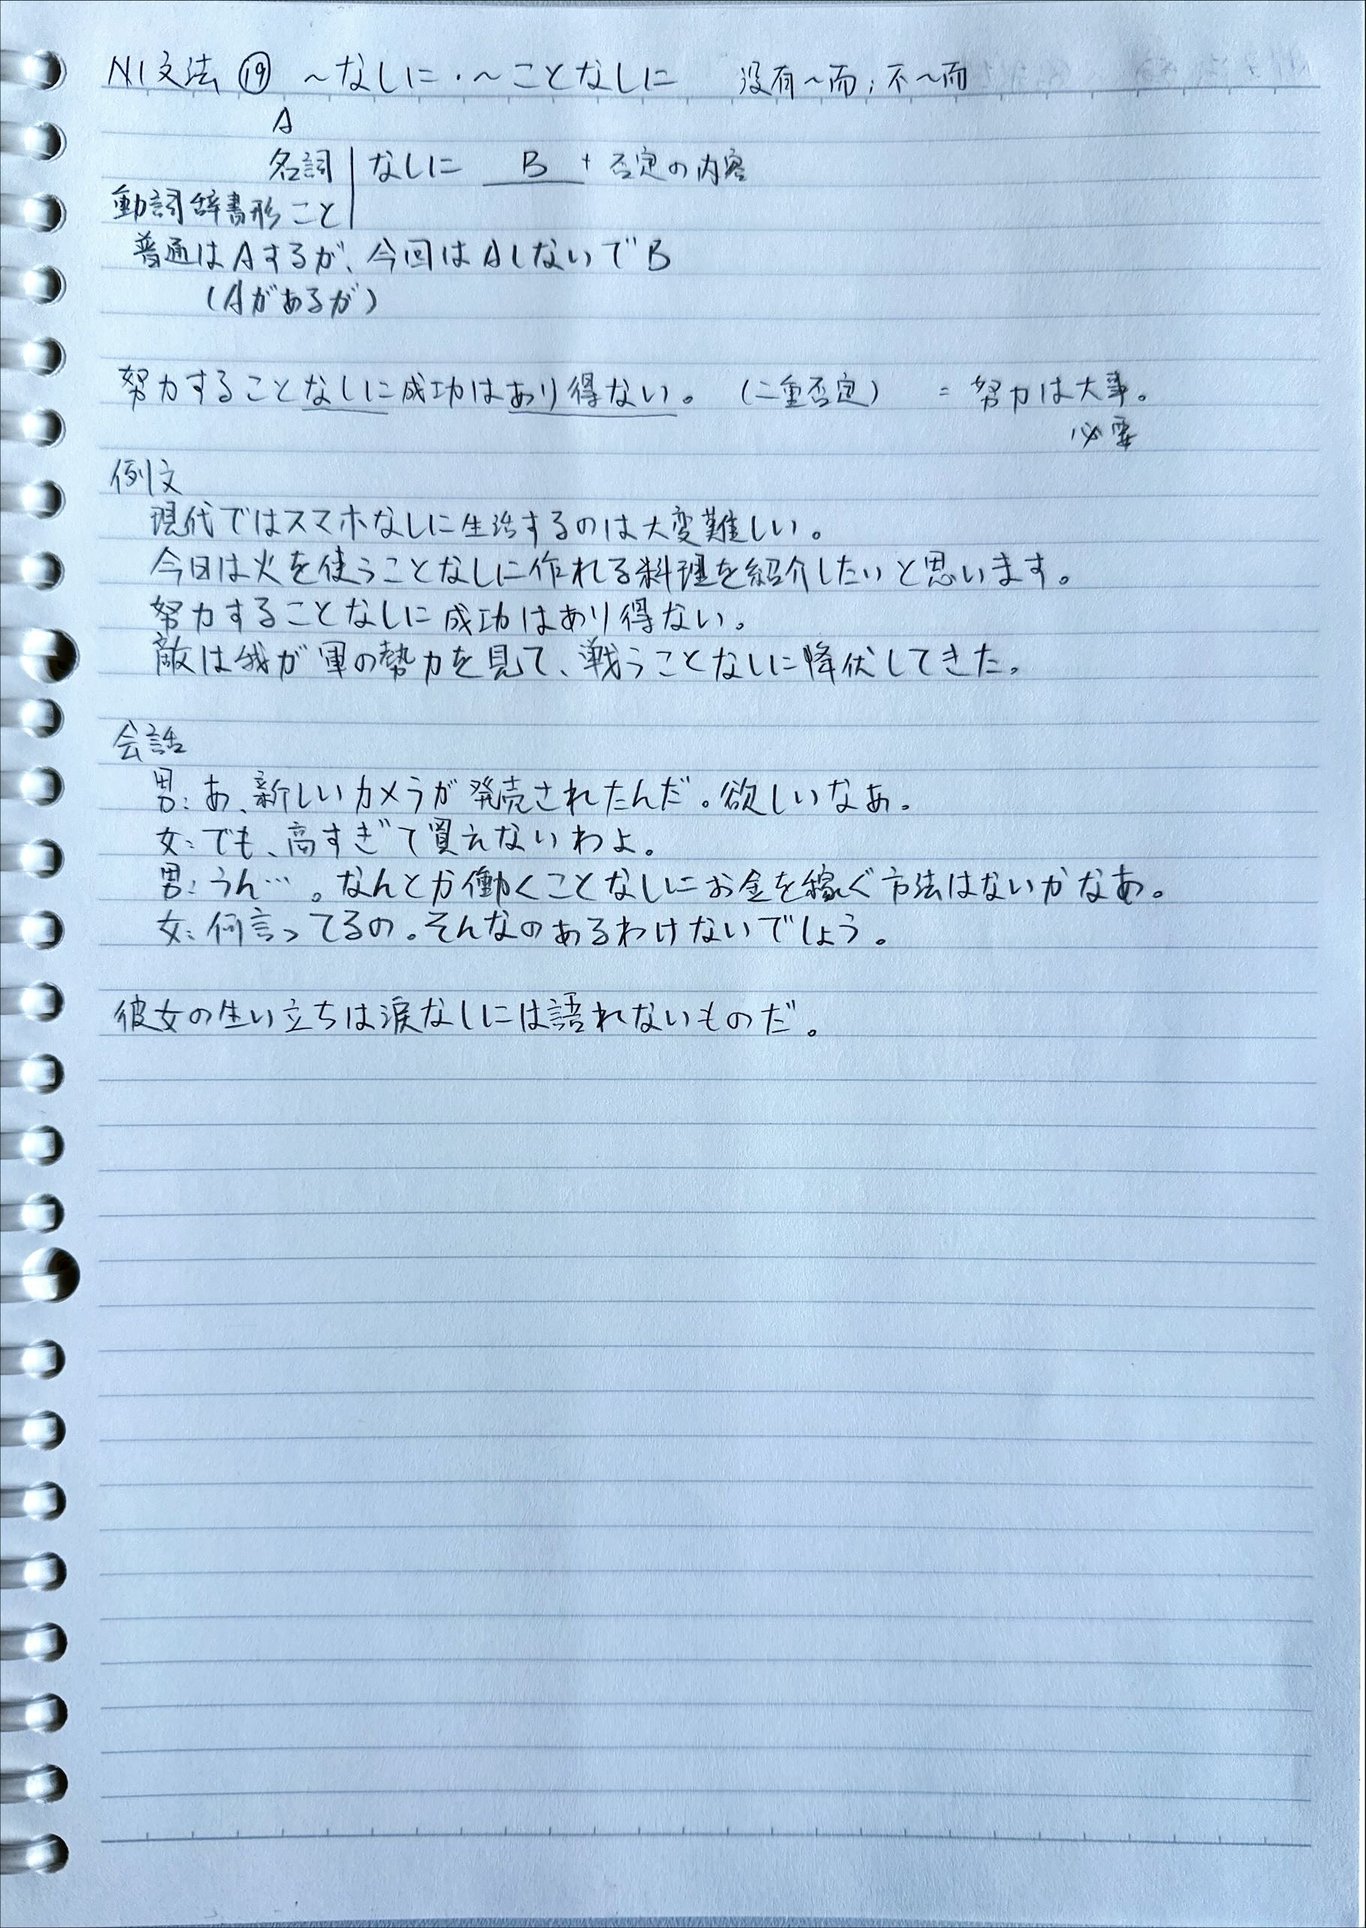 N1文法 ⑲ ～なしに・～ことなしに 没有～而；不～而
A
名詞 なしに B + 否定の内容
動詞辞書形こと
普通はAするが、今回はAしないでB
(Aがあるが)
努力することなしに成功はあり得ない。(二重否定) = 努力は大事。
必要
例文
現代ではスマホなしに生活するのは大変難しい。
今日は火を使うことなしに作れる料理を紹介したいと思います。
努力することなしに成功はあり得ない。
敵は我が軍の勢力を見て、戦うことなしに降伏してきた。
会話
男：あ、新しいカメラが発売されたんだ。欲しいなあ。
女：でも、高すぎて買えないわよ。
男：うん…。なんとか働くことなしにお金を稼ぐ方法はないかなあ。
女：何言ってるの。そんなのあるわけないでしょう。
彼女の生い立ちは涙なしには語れないものだ。